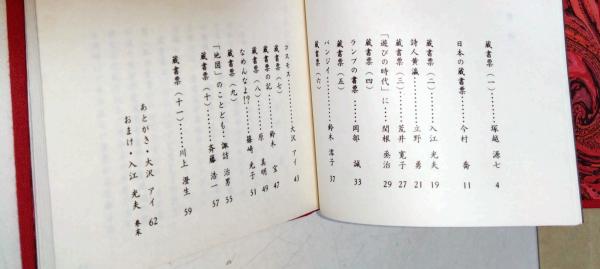 蔵書票(一)……塚越 源七 4
日本の蔵書票……今村 喬 11
蔵書票(二)……入江 光夫 19
詩人黄瀛……立野 勇 21
蔵書票(三)……荒井 寛子 27
「遊びの時代」に……関根 烝治 29
蔵書票(四)
ランプの書票……岡部 誠 33
蔵書票(五)
パンジイ……鈴木 清子 37
蔵書票(六)
コスモス……大沢 アイ 43
蔵書票(七)
蔵書票の記……鈴木 玄 47
蔵書票(八)……原 美明 49
なめんなよ!?……篠崎 光子 51
蔵書票(九)
「地図」のことども・諏訪 治男 55
蔵書票(十)……斉藤 浩一 57
蔵書票(十一)……川上 澄生 59
あとがき・大沢 アイ 62
おまけ・入江 光夫 巻末